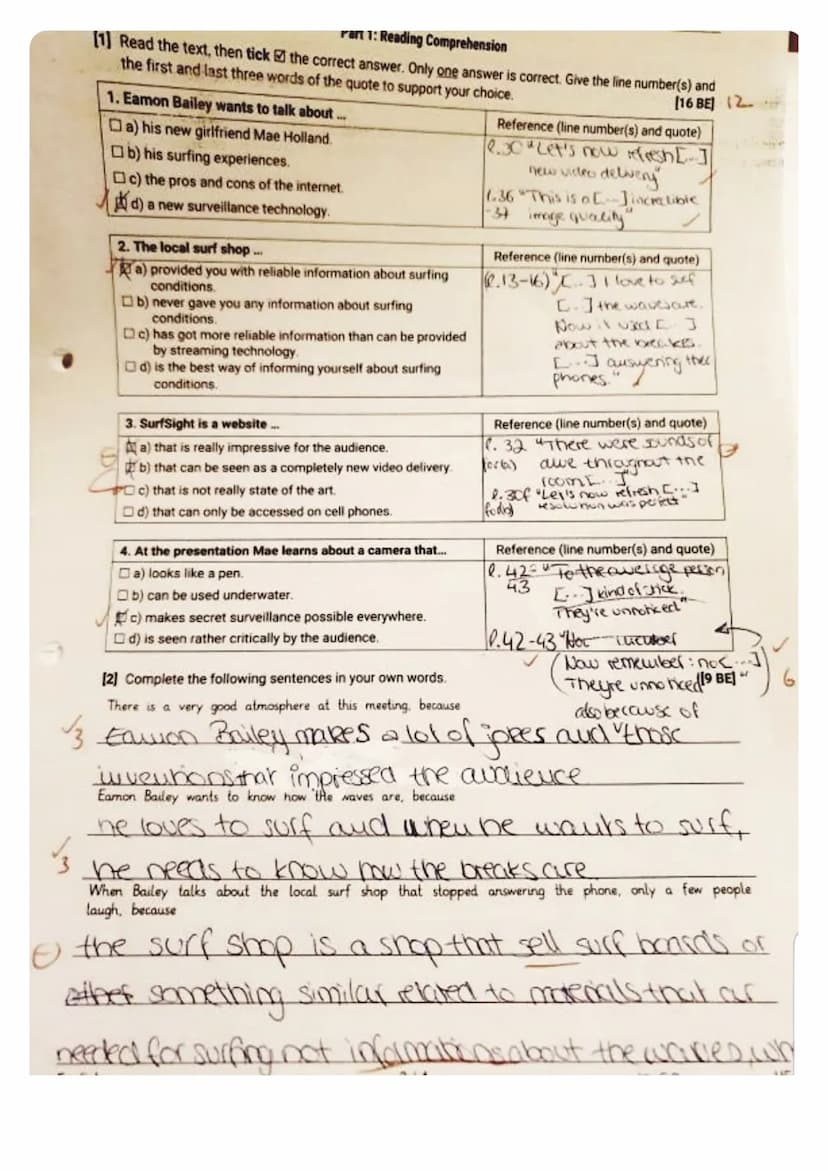 Part 1: Reading Comprehension
[1] Read the text, then tick ☑ the correct answer. Only one answer is correct. Give the line number(s) and
the first and last three words of the quote to support your choice.
[16 BE] 12
1. Eamon Bailey wants to talk about ...
Reference (line number(s) and quote)
a) his new girlfriend Mae Holland.
b) his surfing experiences.
c) the pros and cons of the internet.
d) a new surveillance technology.
l.30 "Let's now refresh [...]
new video delivery"
l.36 "This is a [...] incredible
-37 image quality"
2. The local surf shop ...
Reference (line number(s) and quote)
a) provided you with reliable information about surfing
conditions.
b) never gave you any information about surfing
conditions.
c) has got more reliable information than can be provided
by streaming technology.
d) is the best way of informing yourself about surfing
conditions.
(l.13-16) "[...] I love to surf
[...] the waves are.
Now I used [...]
about the breakes.
[...] answering their
phones."
3. SurfSight is a website ...
Reference (line number(s) and quote)
a) that is really impressive for the audience.
b) that can be seen as a completely new video delivery.
c) that is not really state of the art.
d) that can only be accessed on cell phones.
l. 32 "There were sounds of
awe throughout the
room [...]"
l.30f "Let's now refresh [...]
resolution was perfect"
4. At the presentation Mae learns about a camera that...
Reference (line number(s) and quote)
a) looks like a pen.
b) can be used underwater.
c) makes secret surveillance possible everywhere.
d) is seen rather critically by the audience.
l.42- "To the average person
43 [...] kind of stick.
They're unnoticed"
l.42-43
(Now remember: not [...]
They're unnoticed"
[2] Complete the following sentences in your own words.
[9 BE] 6
There is a very good atmosphere at this meeting, because
also because of
3 Eamon Bailey makes a lot of jokes and those
inventions that impressed the audience
Eamon Bailey wants to know how the waves are, because
he loves to surf and when he wants to surf,
3 he needs to know how the breaks are
When Bailey talks about the local surf shop that stopped answering the phone, only a few people
laugh, because
the surf shop is a shop that sell surf boards or
other something similar related to materials that ar
needed for surfing not informations about the waves,